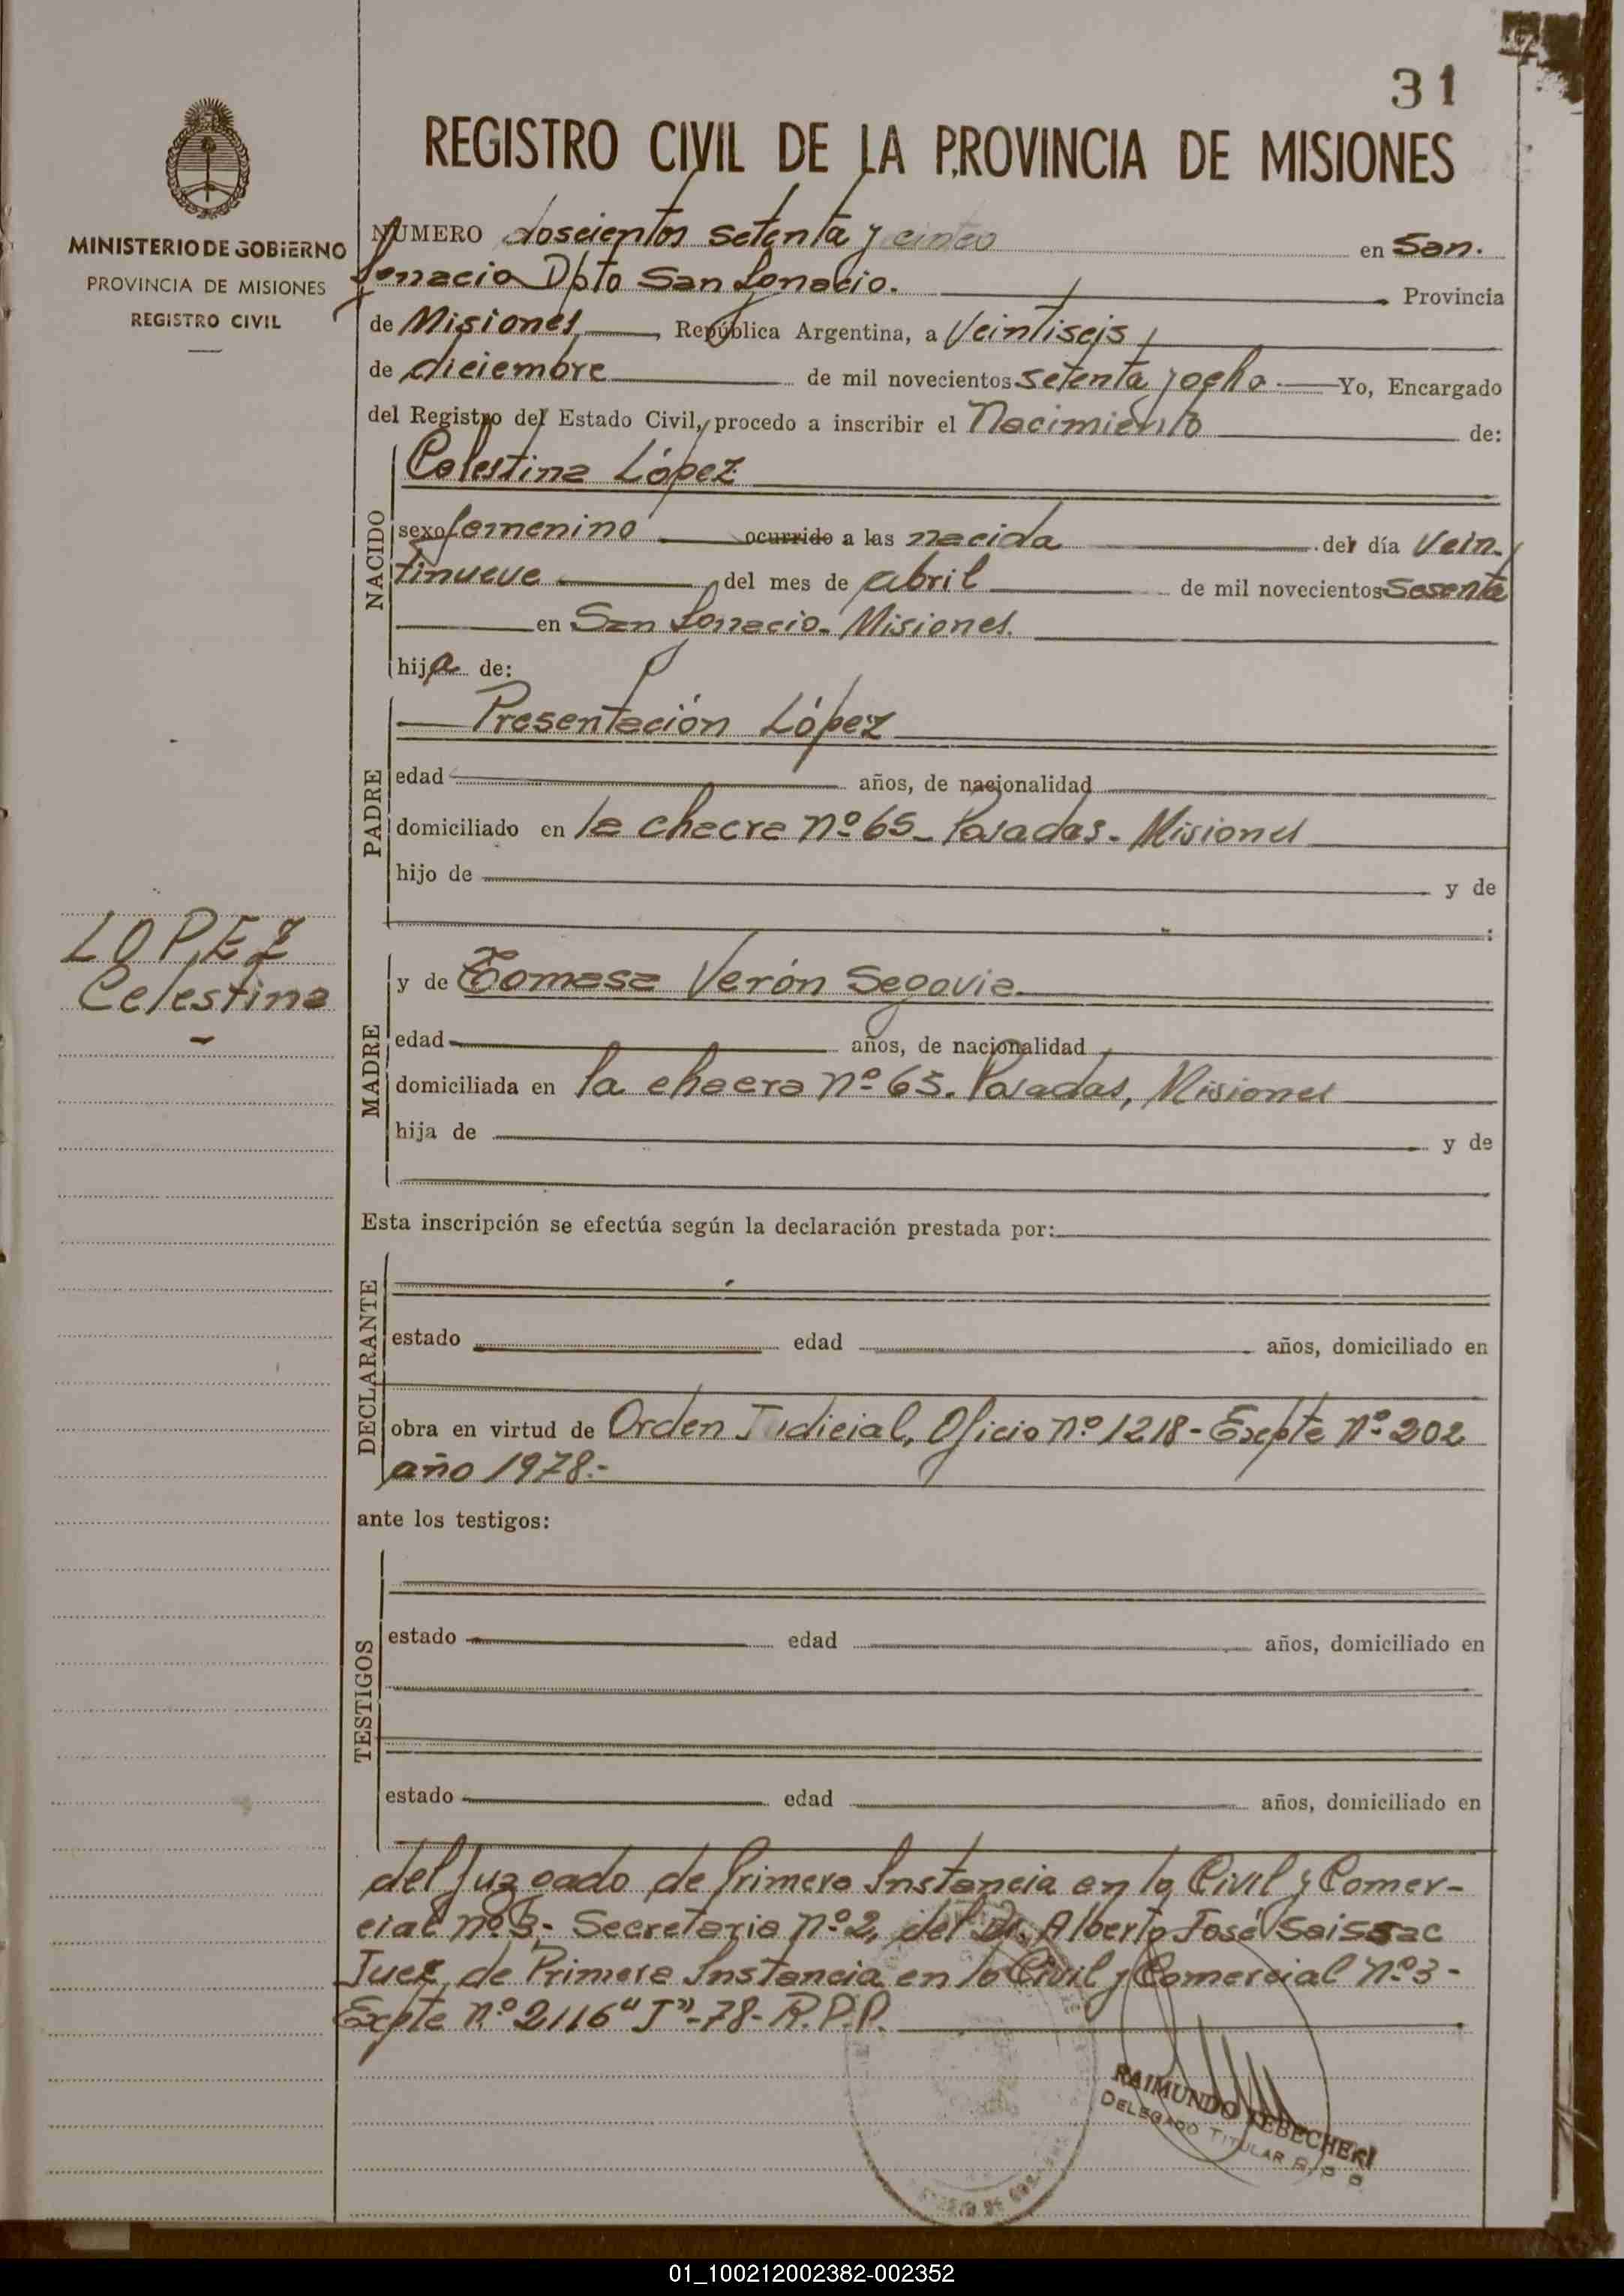 31
REGISTRO CIVIL DE LA PROVINCIA DE MISIONES
MINISTERIO DE GOBIERNO
PROVINCIA DE MISIONES
REGISTRO CIVIL
NUMERO doscientos setenta y cinco en San
Ignacio Dpto San Ignacio. Provincia
de Misiones, República Argentina, a Veintiseis
de diciembre de mil novecientos setenta y ocho Yo, Encargado
del Registro del Estado Civil, procedo a inscribir el Nacimiento de:
NACIDO
Celestina López
sexo femenino ocurrido a las nacida del día Vein-
tinueve del mes de abril de mil novecientos Sesenta
en San Ignacio. Misiones.
hija de:
PADRE
Presentación López
edad años, de nacionalidad
domiciliado en la chacra nº 65 - Posadas - Misiones
hijo de y de
:
LOPEZ
Celestina
MADRE
y de Tomasa Verón Segovia
edad años, de nacionalidad
domiciliada en la chacra nº 65. Posadas, Misiones
hija de y de
Esta inscripción se efectúa según la declaración prestada por:
DECLARANTE
estado edad años, domiciliado en
obra en virtud de Orden Judicial, Oficio nº 1218 - Expte Nº 202
año 1978.-
ante los testigos:
TESTIGOS
estado edad años, domiciliado en
estado edad años, domiciliado en
del Juzgado de Primera Instancia en lo Civil y Comer-
cial nº 3 - Secretaria nº 2, del Dr. Alberto José Saissac
Juez de Primera Instancia en lo Civil y Comercial nº 3 -
Expte nº 2116 "J" - 78 - R.P.P.
RAIMUNDO TEBECHERI
DELEGADO TITULAR
01_100212002382-002352